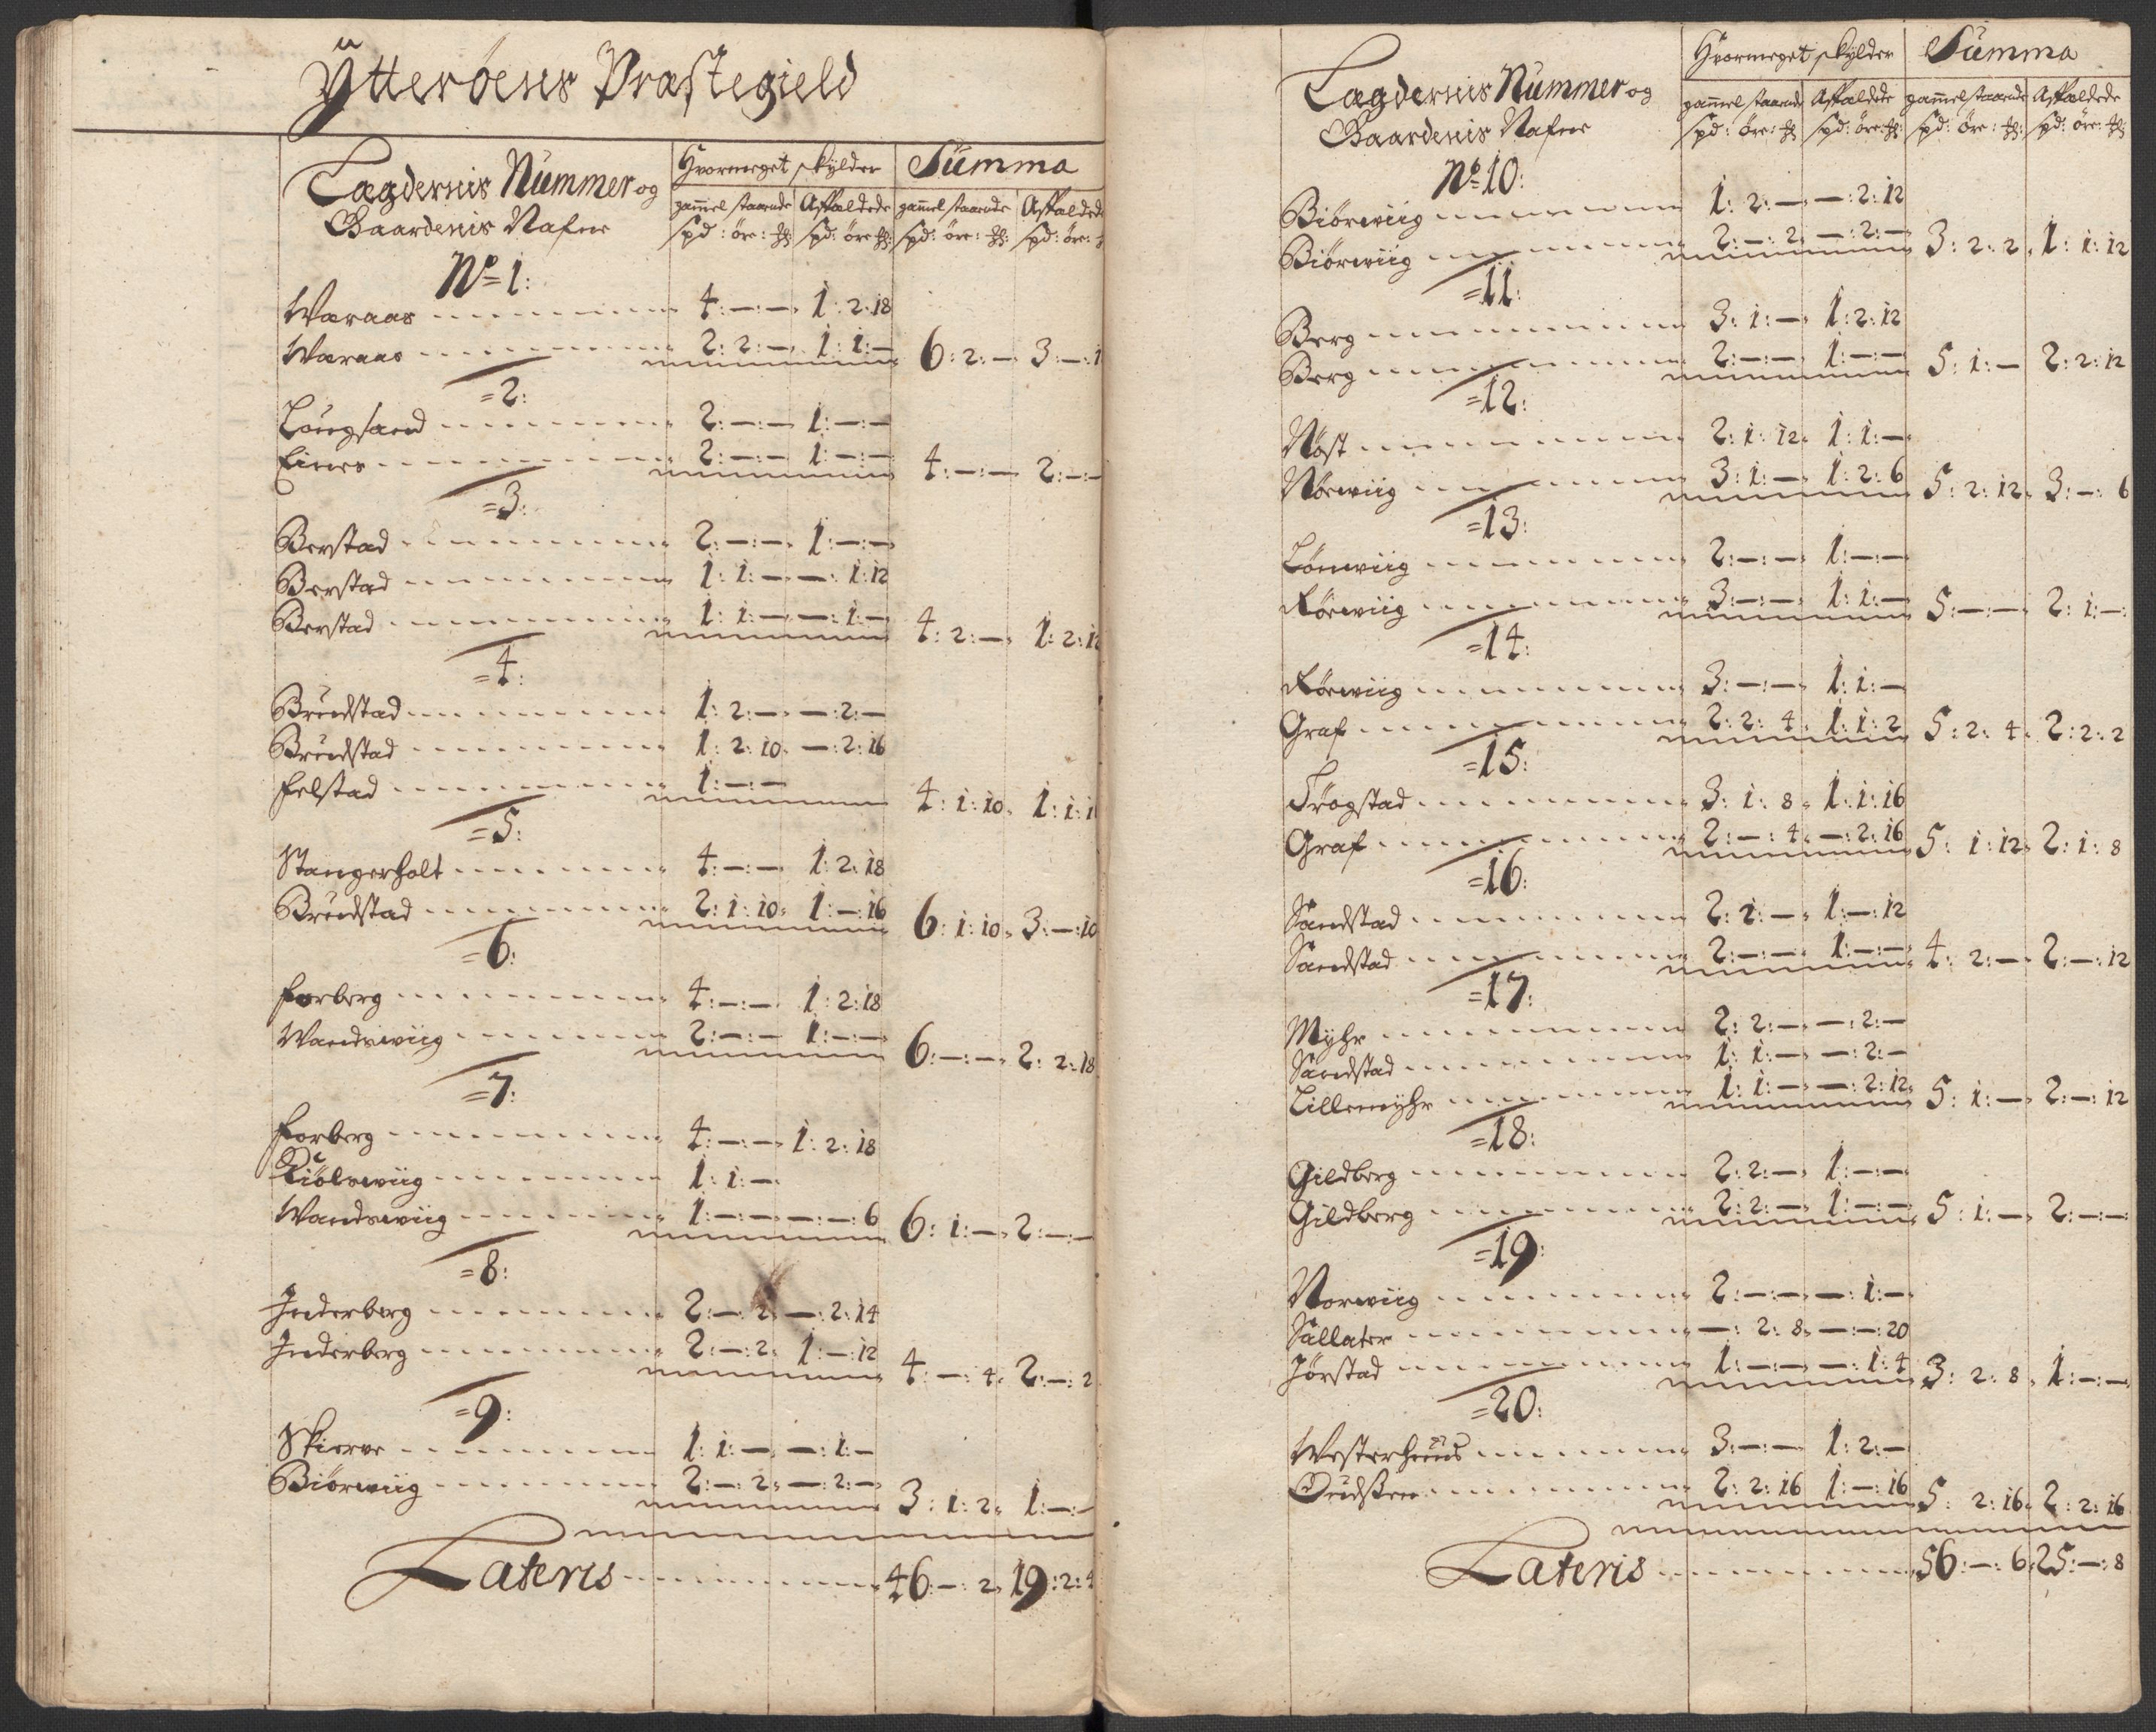 Ytterøens Præstegield
Lægdernis Nummer og
Gaardenis Nafne
Hvormeget skylder
Summa
gam̄elstaaende Affældede gam̄elstaaende Affælded
spd: øre: spd: øre spd: øre: spd: øre:
No 1:
Waraas 4:—:— 1:2:18
Waraas 2:2:— 1:1:— 6:2:— 3:—:1
=2:
Langsand 2:—:— 1:—:—
2:—:— 1:—:— 4:—:— 2:—:—
=3:
Berstad 2:—:— 1:—:—
Berstad 1:1:— —:1:12
Berstad 1:1:— —:1:— 4:2:— 1:2:12
=4:
Brustad 1:2:— —:2:—
Brustad 1:2:10 —:2:16
Felstad 1:—:— 4:1:10 1:1:1
=5:
Stangerholt 4:—:— 1:2:18
Brustad 2:1:10 1:—:16 6:1:10 3:—:10
=6:
Forberg 4:—:— 1:2:18
Wandswiig 2:—:— 1:—:— 6:—:— 2:2:18
=7:
Forberg 4:—:— 1:2:18
Kiölswiig 1:1:—
Wandswiig 1:—:— —:—:6 6:1:— 2:—:—
=8:
Inderberg 2:—:2 —:2:14
Inderberg 2:—:2 1:—:12 4:—:4 2:—:2
=9:
Skierve 1:1:— —:1:—
Biörwiig 2:—:2 —:2:— 3:1:2 1:—:—
Lateris 46:—:2 19:2:4
Lægdernis Nummer og
Gaardenis Nafne
Hvormeget skylder
Summa
gam̄elstaaende Affældede gam̄elstaaende Affældede
spd: øre: spd: øre: spd: øre: spd: øre:
No 10:
Biörwiig 1:2:— —:2:12
Biörwiig 2:—:2 —:2:— 3:2:2 1:1:12
=11:
Berg 3:1:— 1:2:12
Berg 2:—:— 1:—:— 5:1:— 2:2:12
=12:
Nöst 2:1:12 1:1:—
Nörwiig 3:1:— 1:2:6 5:2:12 3:—:6
=13:
Lönwiig 2:—:— 1:—:—
Rörwiig 3:—:— 1:1:— 5:—:— 2:1:—
=14:
Rörwiig 3:—:— 1:1:—
Graf 2:2:4 1:1:2 5:2:4 2:2:2
=15:
Trögstad 3:1:8 1:1:16
Graf 2:—:4 —:2:16 5:1:12 2:1:8
=16:
Sandstad 2:2:— 1:—:12
Sandstad 2:—:— 1:—:— 4:2:— 2:—:12
=17:
Myhr 2:2:— —:2:—
Sandstad 1:1:— —:2:—
Lillemyhr 1:1:— —:2:12 5:1:— 2:—:12
=18:
Gildberg 2:2:— 1:—:—
Gildberg 2:2:— 1:—:— 5:1:— 2:—:—
=19:
Norwiig 2:—:— —:1:—
Sallater —:2:8 —:—:20
Jörstad 1:—:— —:1:4 3:2:8 1:—:—
=20:
Westerhuus 3:—:— 1:2:—
2:2:16 1:—:16 5:2:16 2:2:16
Lateris 56:—:6 25:—:8